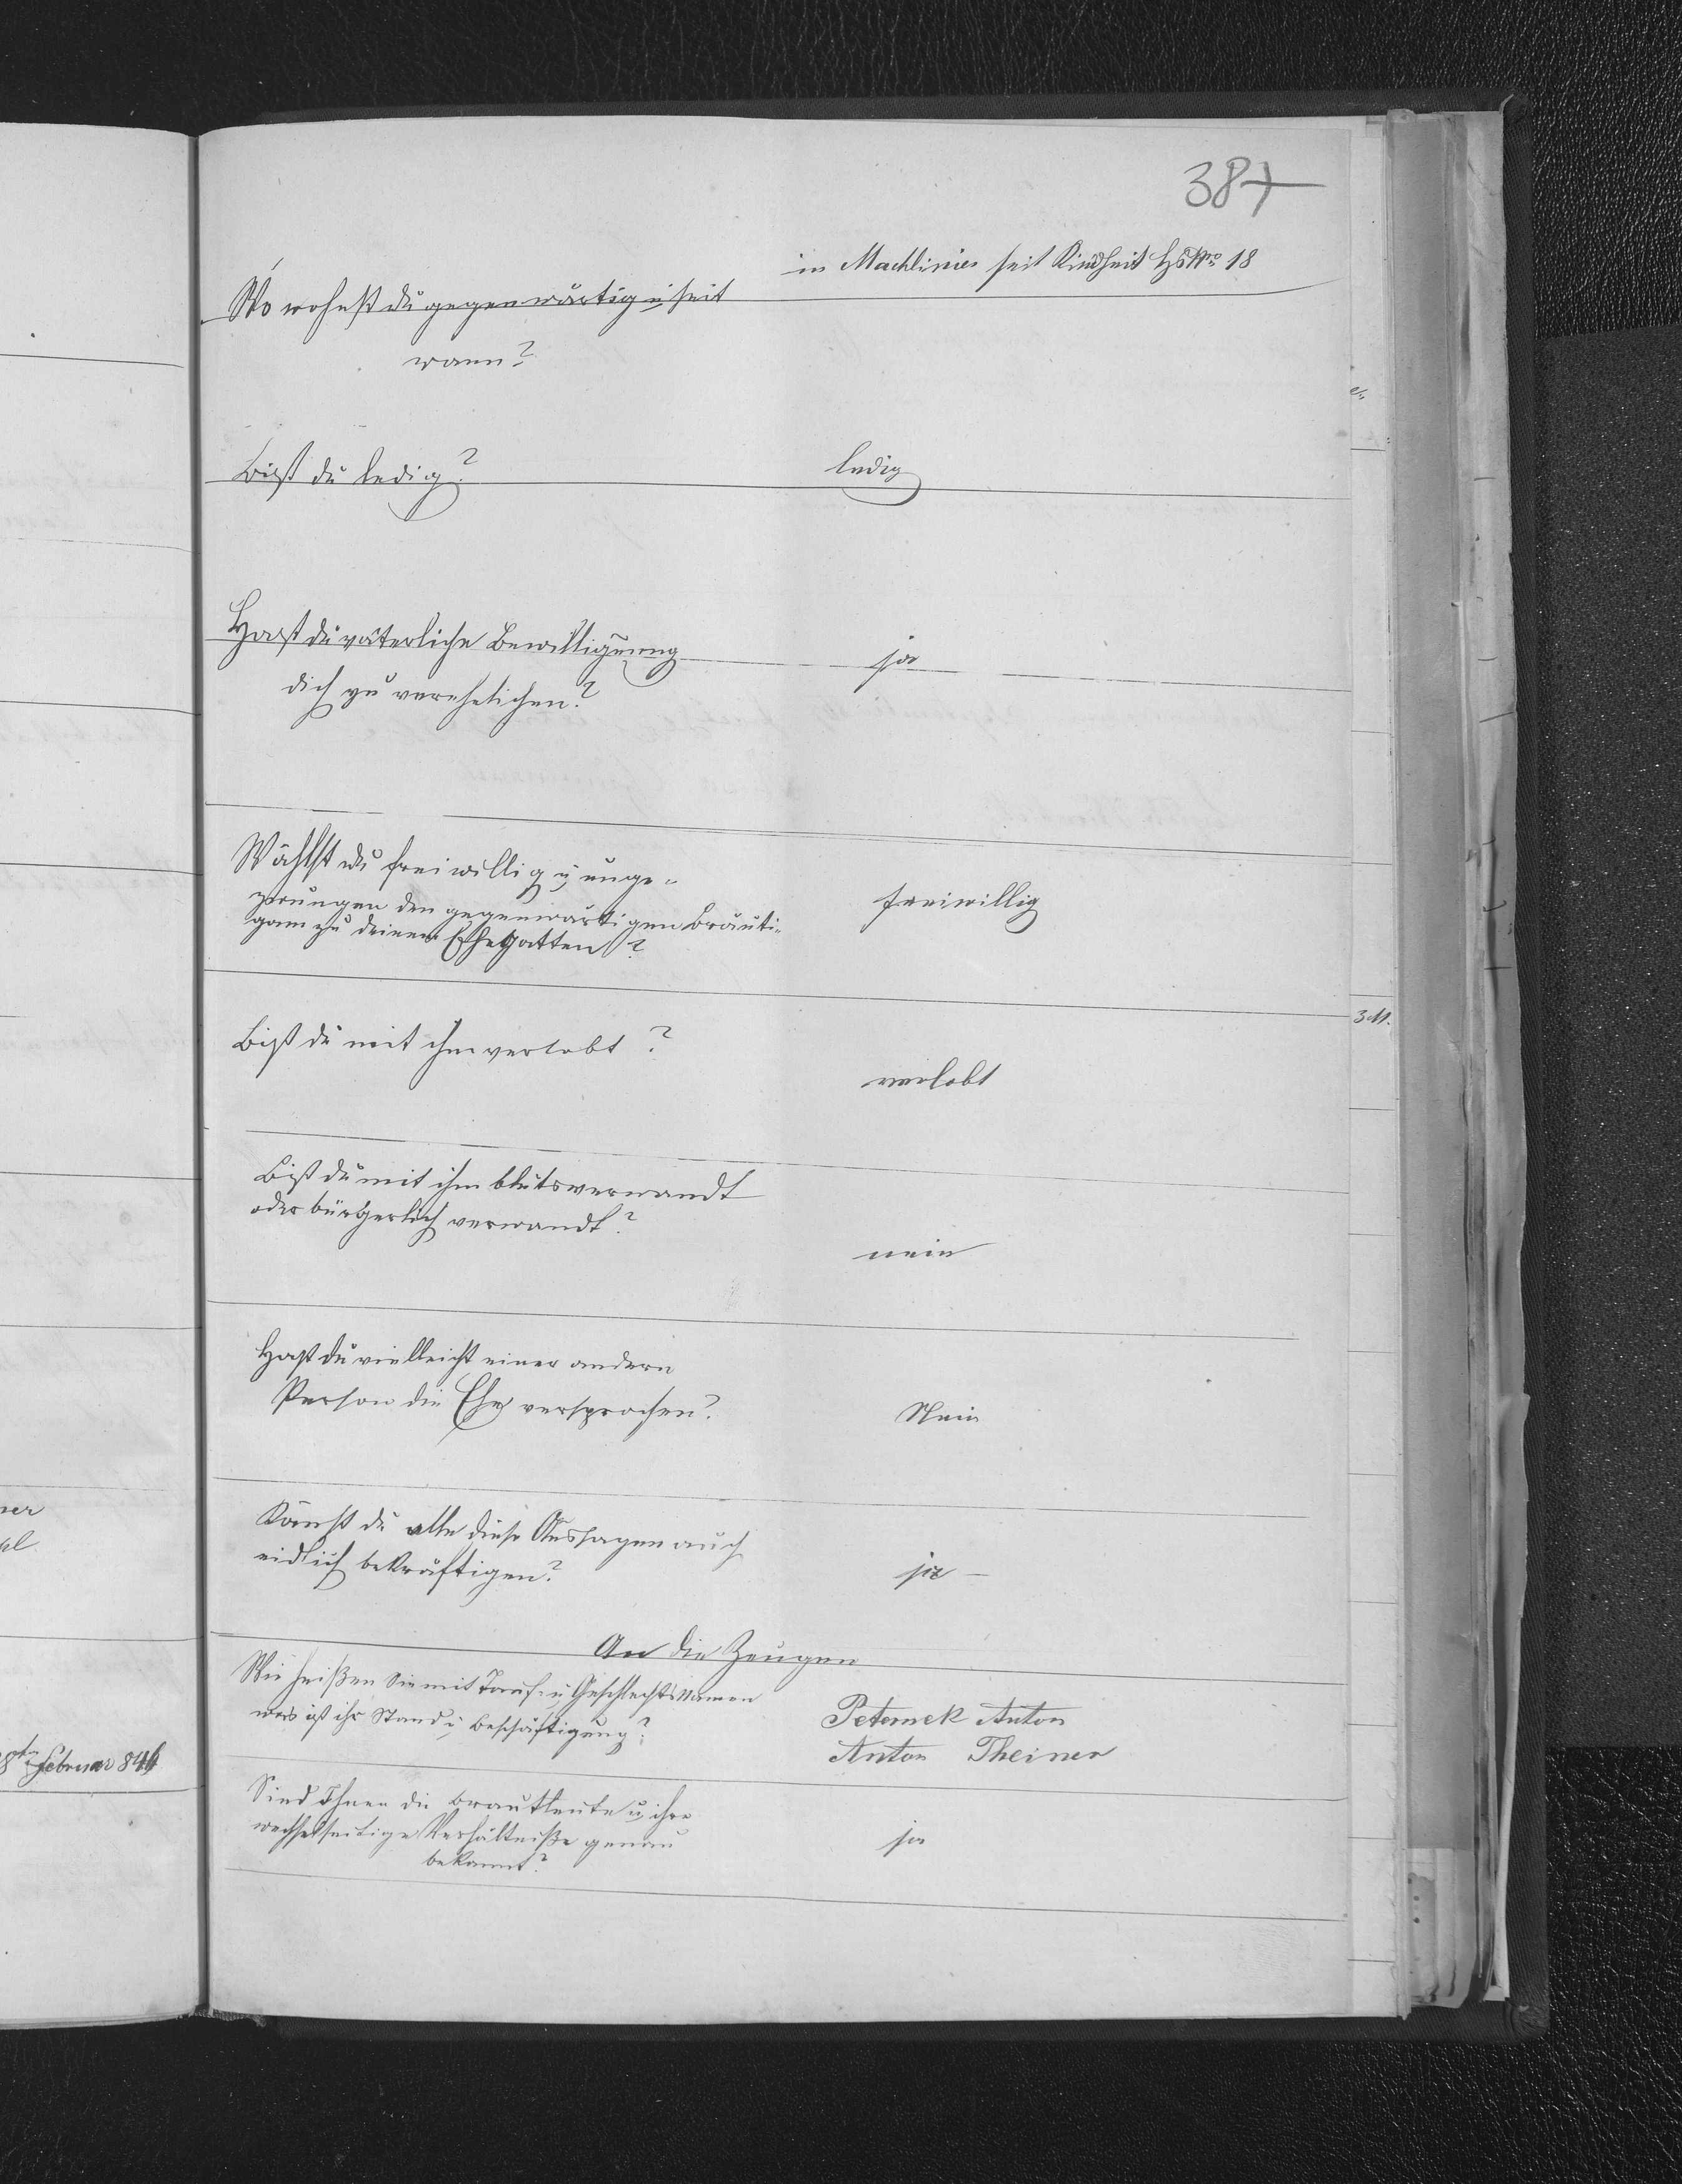 387
in Machlinies seit Kindheit Hs Nro 18
Wo wohnst du gegenwärtig u seit
wann?
Bist du ledig?
ledig
Hast du väterliche Bewilligung
ja
dich zu verehelichen?
Wählst du freiwillig u unge-
zwungen den gegenwärtigen Bräuti-
gam zu deinem Ehegatten?
freiwillig
Bist du mit ihm verlobt?
verlobt
Bist du mit ihm blutsverwandt
oder bürgerlich verwandt?
nein
Hast du vielleicht einer andern
Person die Ehe versprochen?
Nein
Kannst du alle diese Aussagen auch
eidlich bekräftigen?
ja –
An die Zeugen
Wie heißen Sie mit Tauf- u Geschlechtsnamen
was ist ihr Stand u Beschäftigung?
Peternek Anton
Anton Theiner
Sind Ihnen die Brautleute u ihre
wechselseitige Verhältniße genau
bekannt?
ja
ner
8ten Februar 846
3 M.